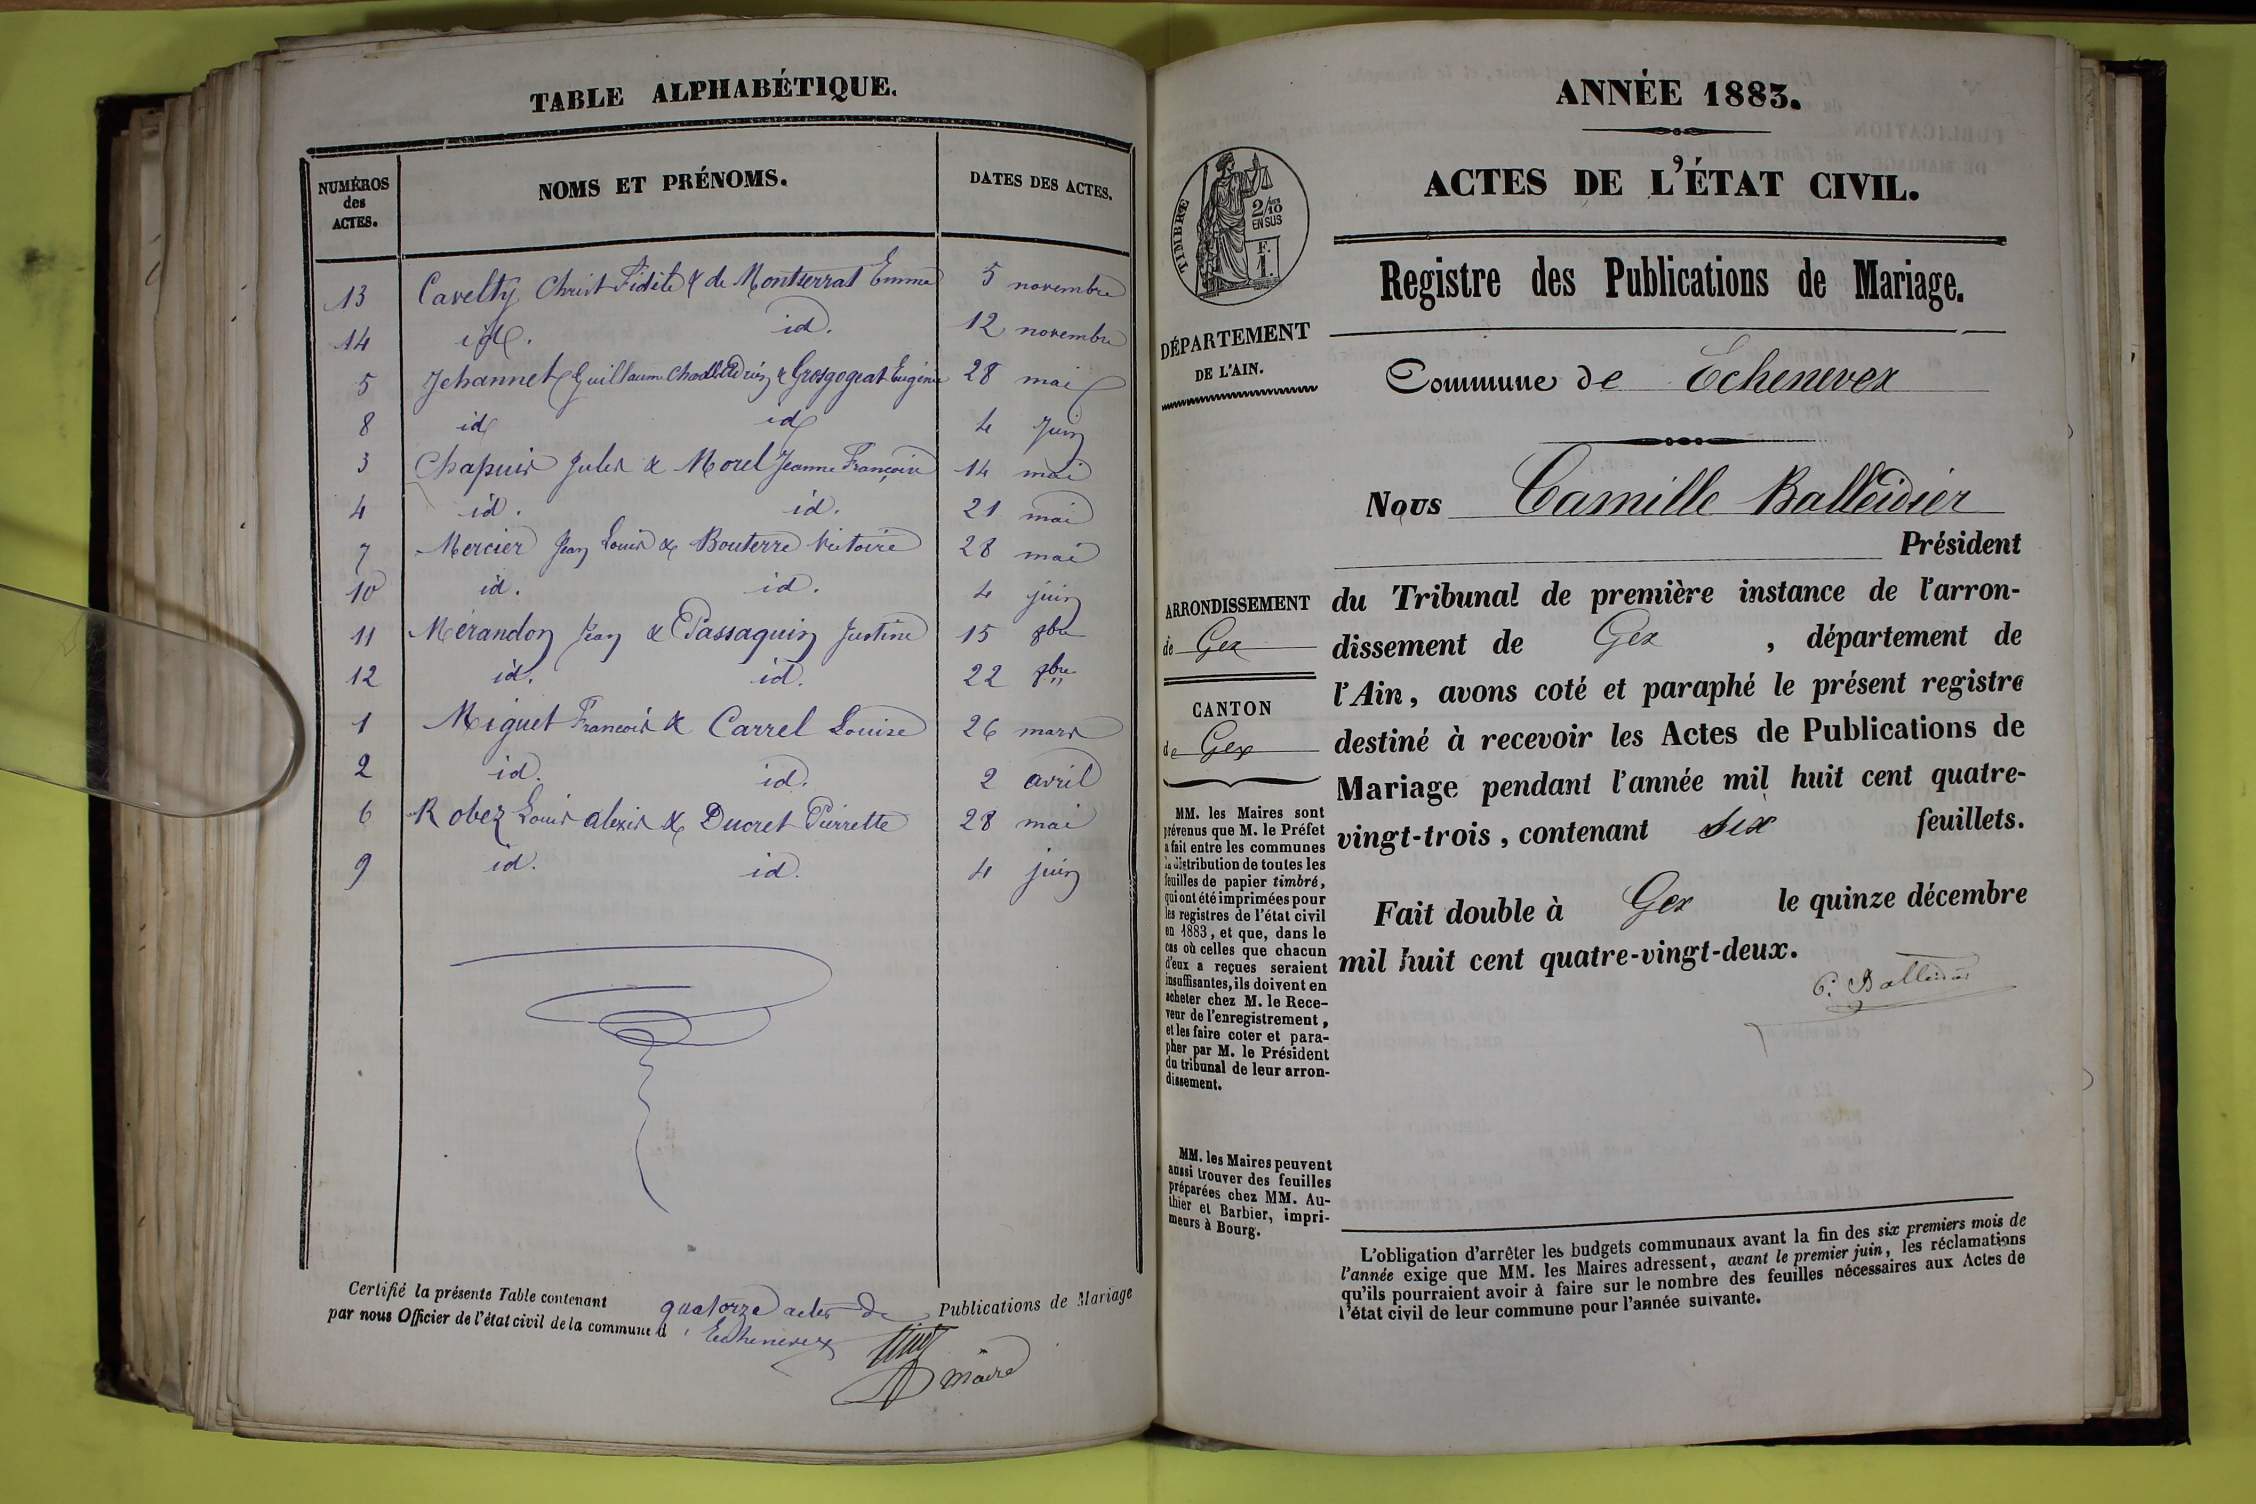 TABLE ALPHABÉTIQUE.
NUMÉROS
des
ACTES.
NOMS ET PRÉNOMS.
DATES DES ACTES.
13 Cavelty Christ Fidèle & de Montserrat Emma 5 novembre
14 id. id. 12 novembre
5 Jehannet Guillaume & Grosgogeat Eugénie 28 mai
8 id id 4 Juin
3 Chapuis Jules & Morel Jeanne Françoise 14 mai
4 id. id. 21 mai
7 Mercier Jean Louis & Bouterre Victoire 28 mai
10 id. id. 4 juin
11 Mérandon Jean & Passaquin Justine 15 8bre
12 id. id. 22 8bre
1 Miguet François & Carrel Louise 26 mars
2 id. id. 2 avril
6 Robez Louis alexis & Ducret Pierrette 28 mai
9 id. id. 4 juin
Certifié la présente Table contenant quatorze actes de Publications de Mariage
par nous Officier de l'état civil de la commune d'Echenevex
maire
ANNÉE 1883.
ACTES DE L'ÉTAT CIVIL.
TIMBRE
2/10
EN SUS
F.
1.
Registre des Publications de Mariage.
DÉPARTEMENT
DE L'AIN.
Commune de Echenevex
Nous Camille Balleidier
Président
ARRONDISSEMENT
de Gex
CANTON
de Gex
du Tribunal de première instance de l'arron-
dissement de Gex , département de
l'Ain, avons coté et paraphé le présent registre
destiné à recevoir les Actes de Publications de
Mariage pendant l'année mil huit cent quatre-
vingt-trois, contenant six feuillets.
Fait double à Gex le quinze décembre
mil huit cent quatre-vingt-deux.
C. Balleidier
MM. les Maires sont
prévenus que M. le Préfet
a fait entre les communes
la distribution de toutes les
feuilles de papier timbré,
qui ont été imprimées pour
les registres de l'état civil
en 1883, et que, dans le
cas où celles que chacun
d'eux a reçues seraient
insuffisantes, ils doivent en
acheter chez M. le Rece-
veur de l'enregistrement,
et les faire coter et para-
pher par M. le Président
du tribunal de leur arron-
dissement.
MM. les Maires peuvent
aussi trouver des feuilles
préparées chez MM. Au-
thier et Barbier, impri-
meurs à Bourg.
L'obligation d'arrêter les budgets communaux avant la fin des six premiers mois de
l'année exige que MM. les Maires adressent, avant le premier juin, les réclamations
qu'ils pourraient avoir à faire sur le nombre des feuilles nécessaires aux Actes de
l'état civil de leur commune pour l'année suivante.